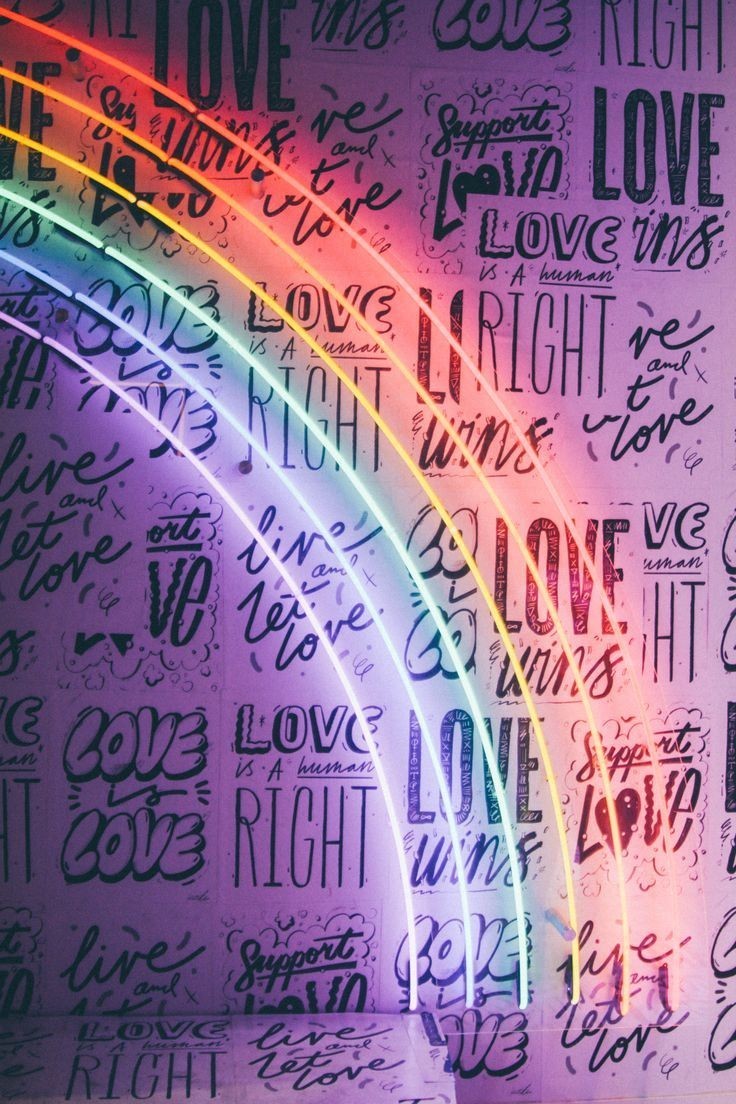 LOVE
wins
LOVE
RIGHT
Support
LOVE
LOVE
wins
LOVE
IS A human
RIGHT
live
and
let
love
LOVE
is
LOVE
LOVE
IS A human
RIGHT
wins
live
and
let
love
Support
LOVE
live
and
let
love
LOVE
wins
human
LOVE
is
LOVE
LOVE
IS A human
RIGHT
LOVE
wins
Support
LOVE
live
and
Support
LOVE
LOVE
live
and
let
love
LOVE
IS A human
RIGHT
live
and
let
love
LOVE